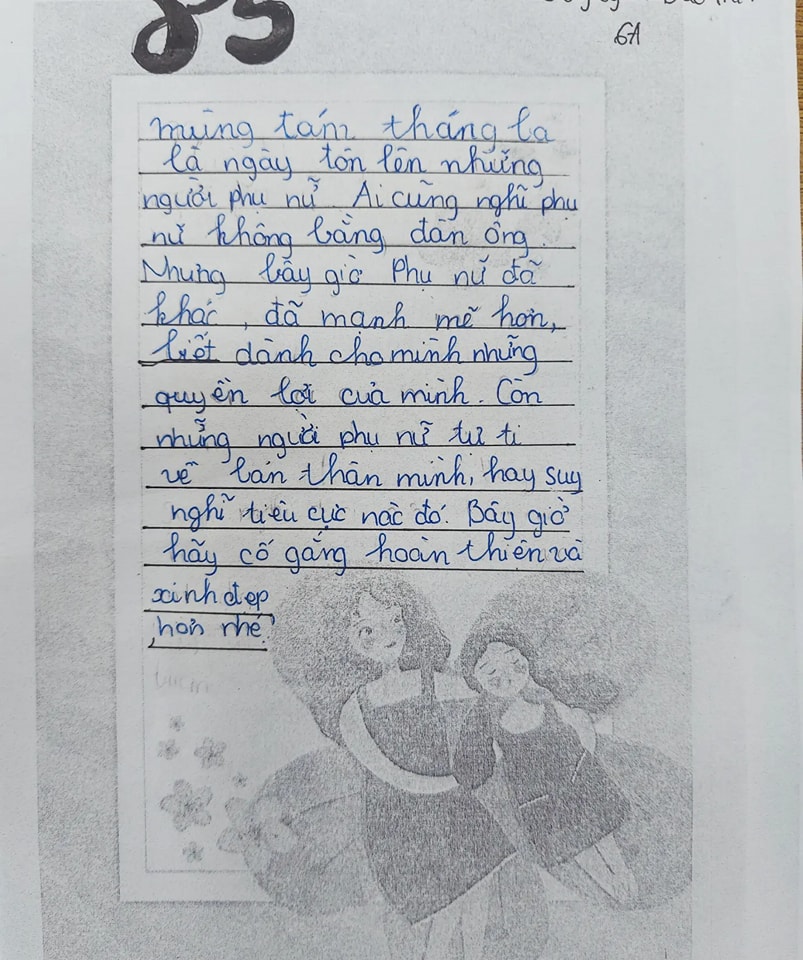 83
6A
mùng tám tháng ba
là ngày tôn lên những
người phụ nữ Ai cũng nghĩ phụ
nữ không bằng đàn ông.
Nhưng bây giờ Phụ nứ đã
khác, đã mạnh mẽ hơn,
biết dành cho mình những
quyền lợi của mình. Còn
những người phụ nữ tự ti
về bản thân mình, hay suy
nghĩ tiêu cực nào đó. Bây giờ
hãy cố gắng hoàn thiện và
xinh đẹp
hơn nhé